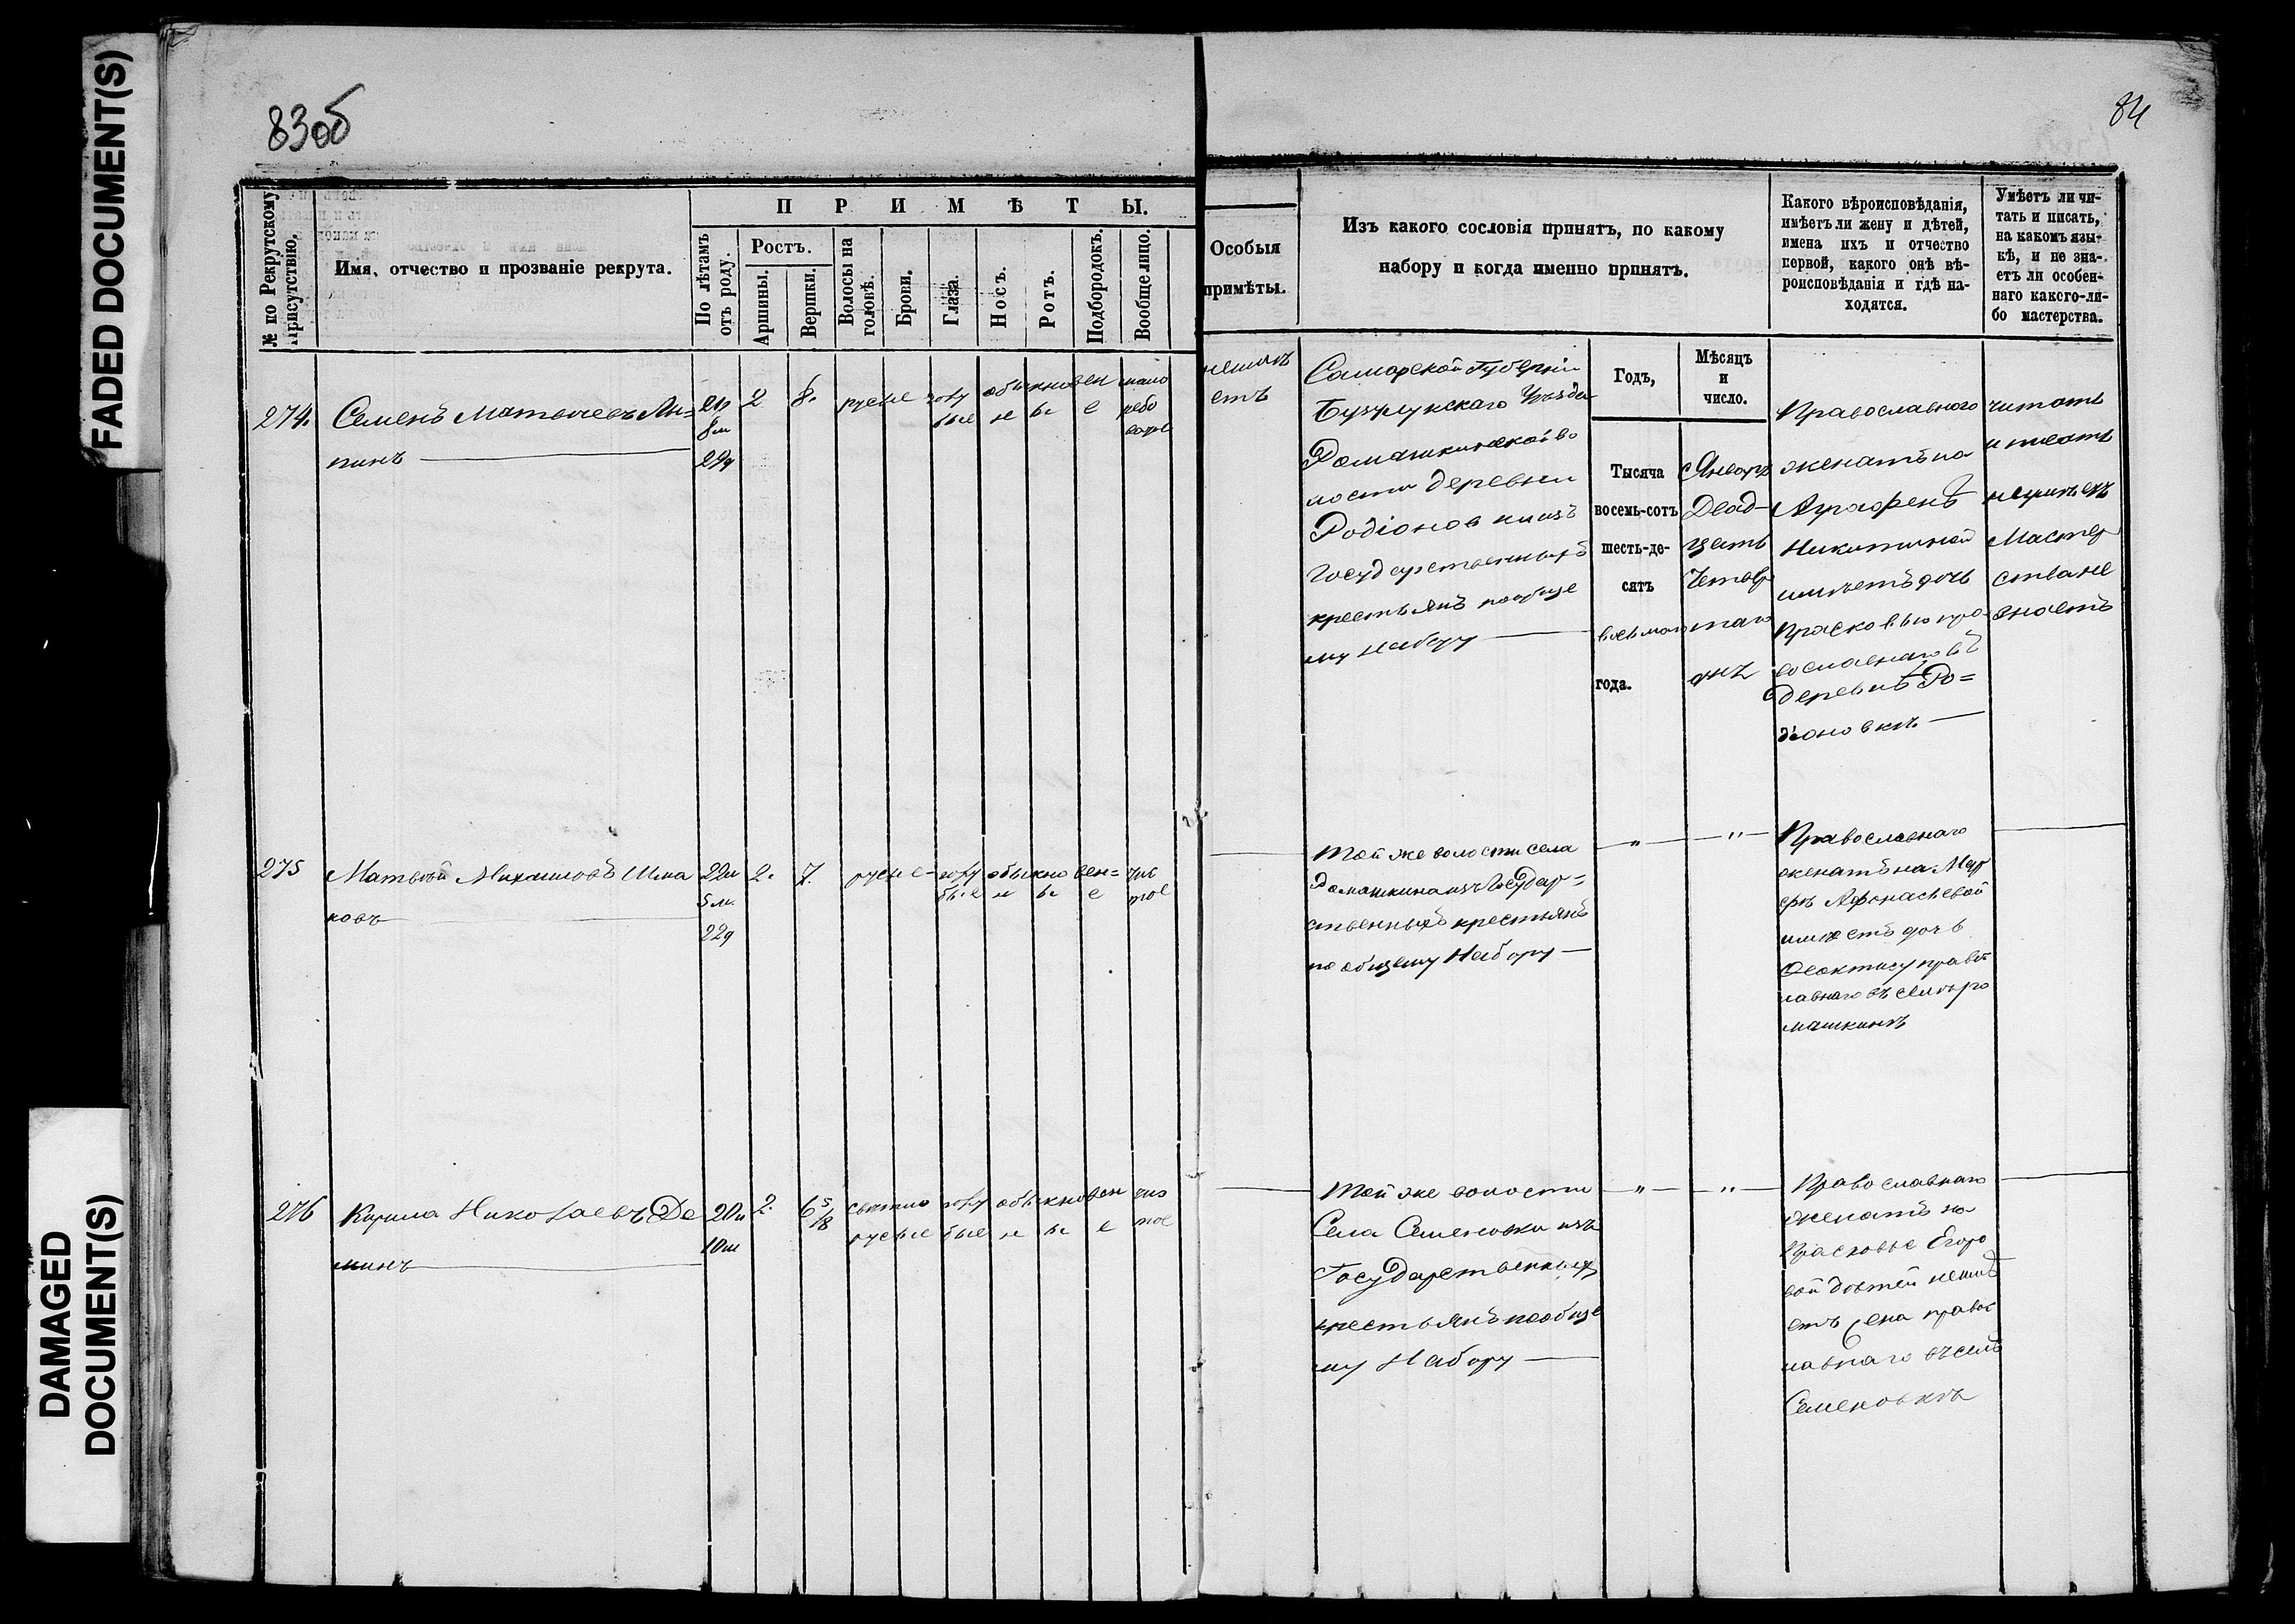 FADED DOCUMENT(S)
DAMAGED
DOCUMENT(S)
83об
84
№ по Рекрутскому
присутствію.
Имя, отчество и прозваніе рекрута.
ПРИМѢТЫ.
По лѣтамъ
отъ роду.
Ростъ.
Аршины.
Вершки.
Волосы на
головѣ.
Брови.
Глаза.
Носъ.
Ротъ.
Подбородокъ.
Вообще лицо.
Особыя
примѣты.
Изъ какого сословія принятъ, по какому
набору и когда именно принятъ.
Какого вѣроисповѣданія,
имѣетъ ли жену и дѣтей,
имена ихъ и отчество
первой, какого онѣ вѣ-
роисповѣданія и гдѣ на-
ходятся.
Умѣетъ ли чи-
тать и писать,
на какомъ язы-
кѣ, и не зна-
етъ ли особен-
наго какого-ли-
бо мастерства.
274.
Семенъ Матвѣевъ
пинъ
8м
2
8.
русые
голу
бые
обыкновен
н ы е
неимѣ
етъ
Самарской Губерніи
Бузулукскаго Уѣзда
Ромашкинской во
лости деревни
Родіоновки изъ
Государственныхъ
крестьянъ пообще
му Набору
Годъ,
Тысяча
восемь-сотъ
шесть-де-
сятъ
восьмаго
года.
Мѣсяцъ
и
число.
Январ
Двад-
цать
Четвер
таго
дня
Православного
женатъ на
Аграфенѣ
Никитиной
имѣетъ дочь
Прасковью пра-
вославнаго въ
деревнѣ Ро=
діоновкѣ
читать
и писать
неумѣетъ
Мастер
ства не
знаетъ
275
Матвѣй Михаиловъ Шма
ковъ
22л
5м.
22д
2.
7.
русые
голу
бые
обыкновен=
н ы е
чис
тое
Той же волости села
Ромашкина изъ Государ=
ственныхъ крестьянъ
по общему Набору
"
"
Православнаго
женатъ на
Афонасьевой
имѣетъ дочь
Феоктису правос
лавнаго въ селѣ Ро
машкинѣ
276
Кирила Николаевъ Де
минъ
20л
10м
2.
6 5/8
свѣтло
русые
голу
бые
обыкновен
н ы е
чис
тое
Той же волости
Села Семеновки изъ
Государственныхъ
крестьянъ пообще
му Набору
"
"
Православнаго
женатъ на
Прасковье Егоро
вой дѣтей неимѣ
етъ правос
лавнаго въ селѣ
Семеновкѣ